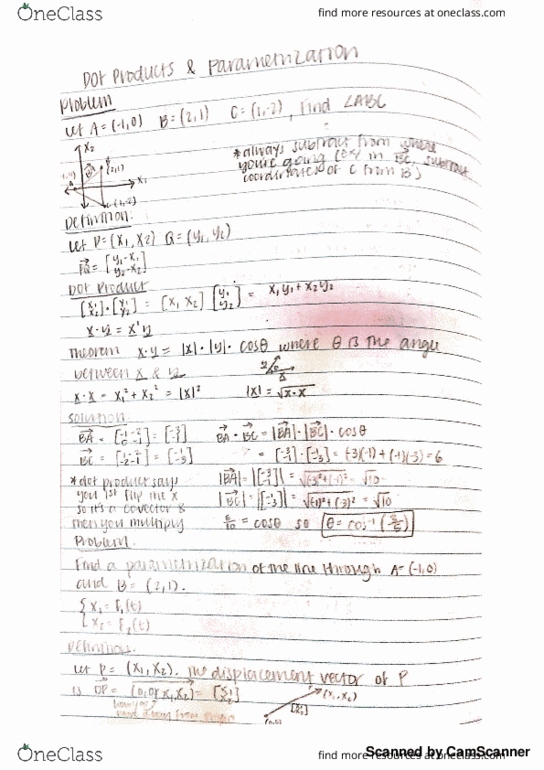 OneClass
find more resources at oneclass.com
Dot Products & Parametrization
Problem
Let A = (-1,0) B = (2,1) C = (1,-2), Find ∠ABC
x₂
(2,1)
x₁
C(1,-2)
*always subtract from where
you're going (ex/ in BC, subtract
coordinates of C from B)
Definition:
Let P = (x₁, x₂) Q = (y₁, y₂)
PQ = [y₁-x₁ y₂-x₂]
Dot Product
[x₁ x₂]·[y₁ y₂] = [x₁ x₂][y₁ y₂] = x₁y₁ + x₂y₂
x·y = xᵗy
Theorem x·y = |x|·|y|·cosθ where θ is the angle
between x & y
x·x = x₁² + x₂² = |x|² |x| = √x·x
Solution:
BA = [-1-2 0-1] = [-3 -1] BA·BC = |BA|·|BC|·cosθ
BC = [1-2 -2-1] = [-1 -3] = [-3 -1]·[-1 -3] = (-3)(-1)+(-1)(-3) = 6
*dot product says |BA| = |[-3 -1]| = √(-3)²+(-1)² = √10
you 1st flip the x |BC| = |[-1 -3]| = √(-1)²+(-3)² = √10
so it's a covector &
then you multiply 6/10 = cosθ so θ = cos⁻¹(3/5)
Problem
Find a parametrization of the line through A = (-1,0)
and B = (2,1).
{ x₁ = f₁(t)
x₂ = f₂(t)
Definition:
Let P = (x₁, x₂). The displacement vector of P
is OP = [x₁ x₂]
(x₁, x₂)
(0,0)
OneClass
find more resources at oneclass.com
Scanned by CamScanner